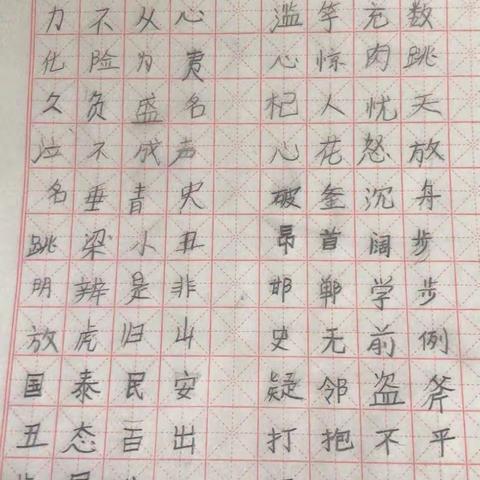 力不从心 滥竽充数
化险为夷 心惊肉跳
久负盛名 杞人忧天
泣不成声 心花怒放
名垂青史 破釜沉舟
跳梁小丑 昂首阔步
明辨是非 邯郸学步
放虎归山 史无前例
国泰民安 疑邻盗斧
丑态百出 打抱不平